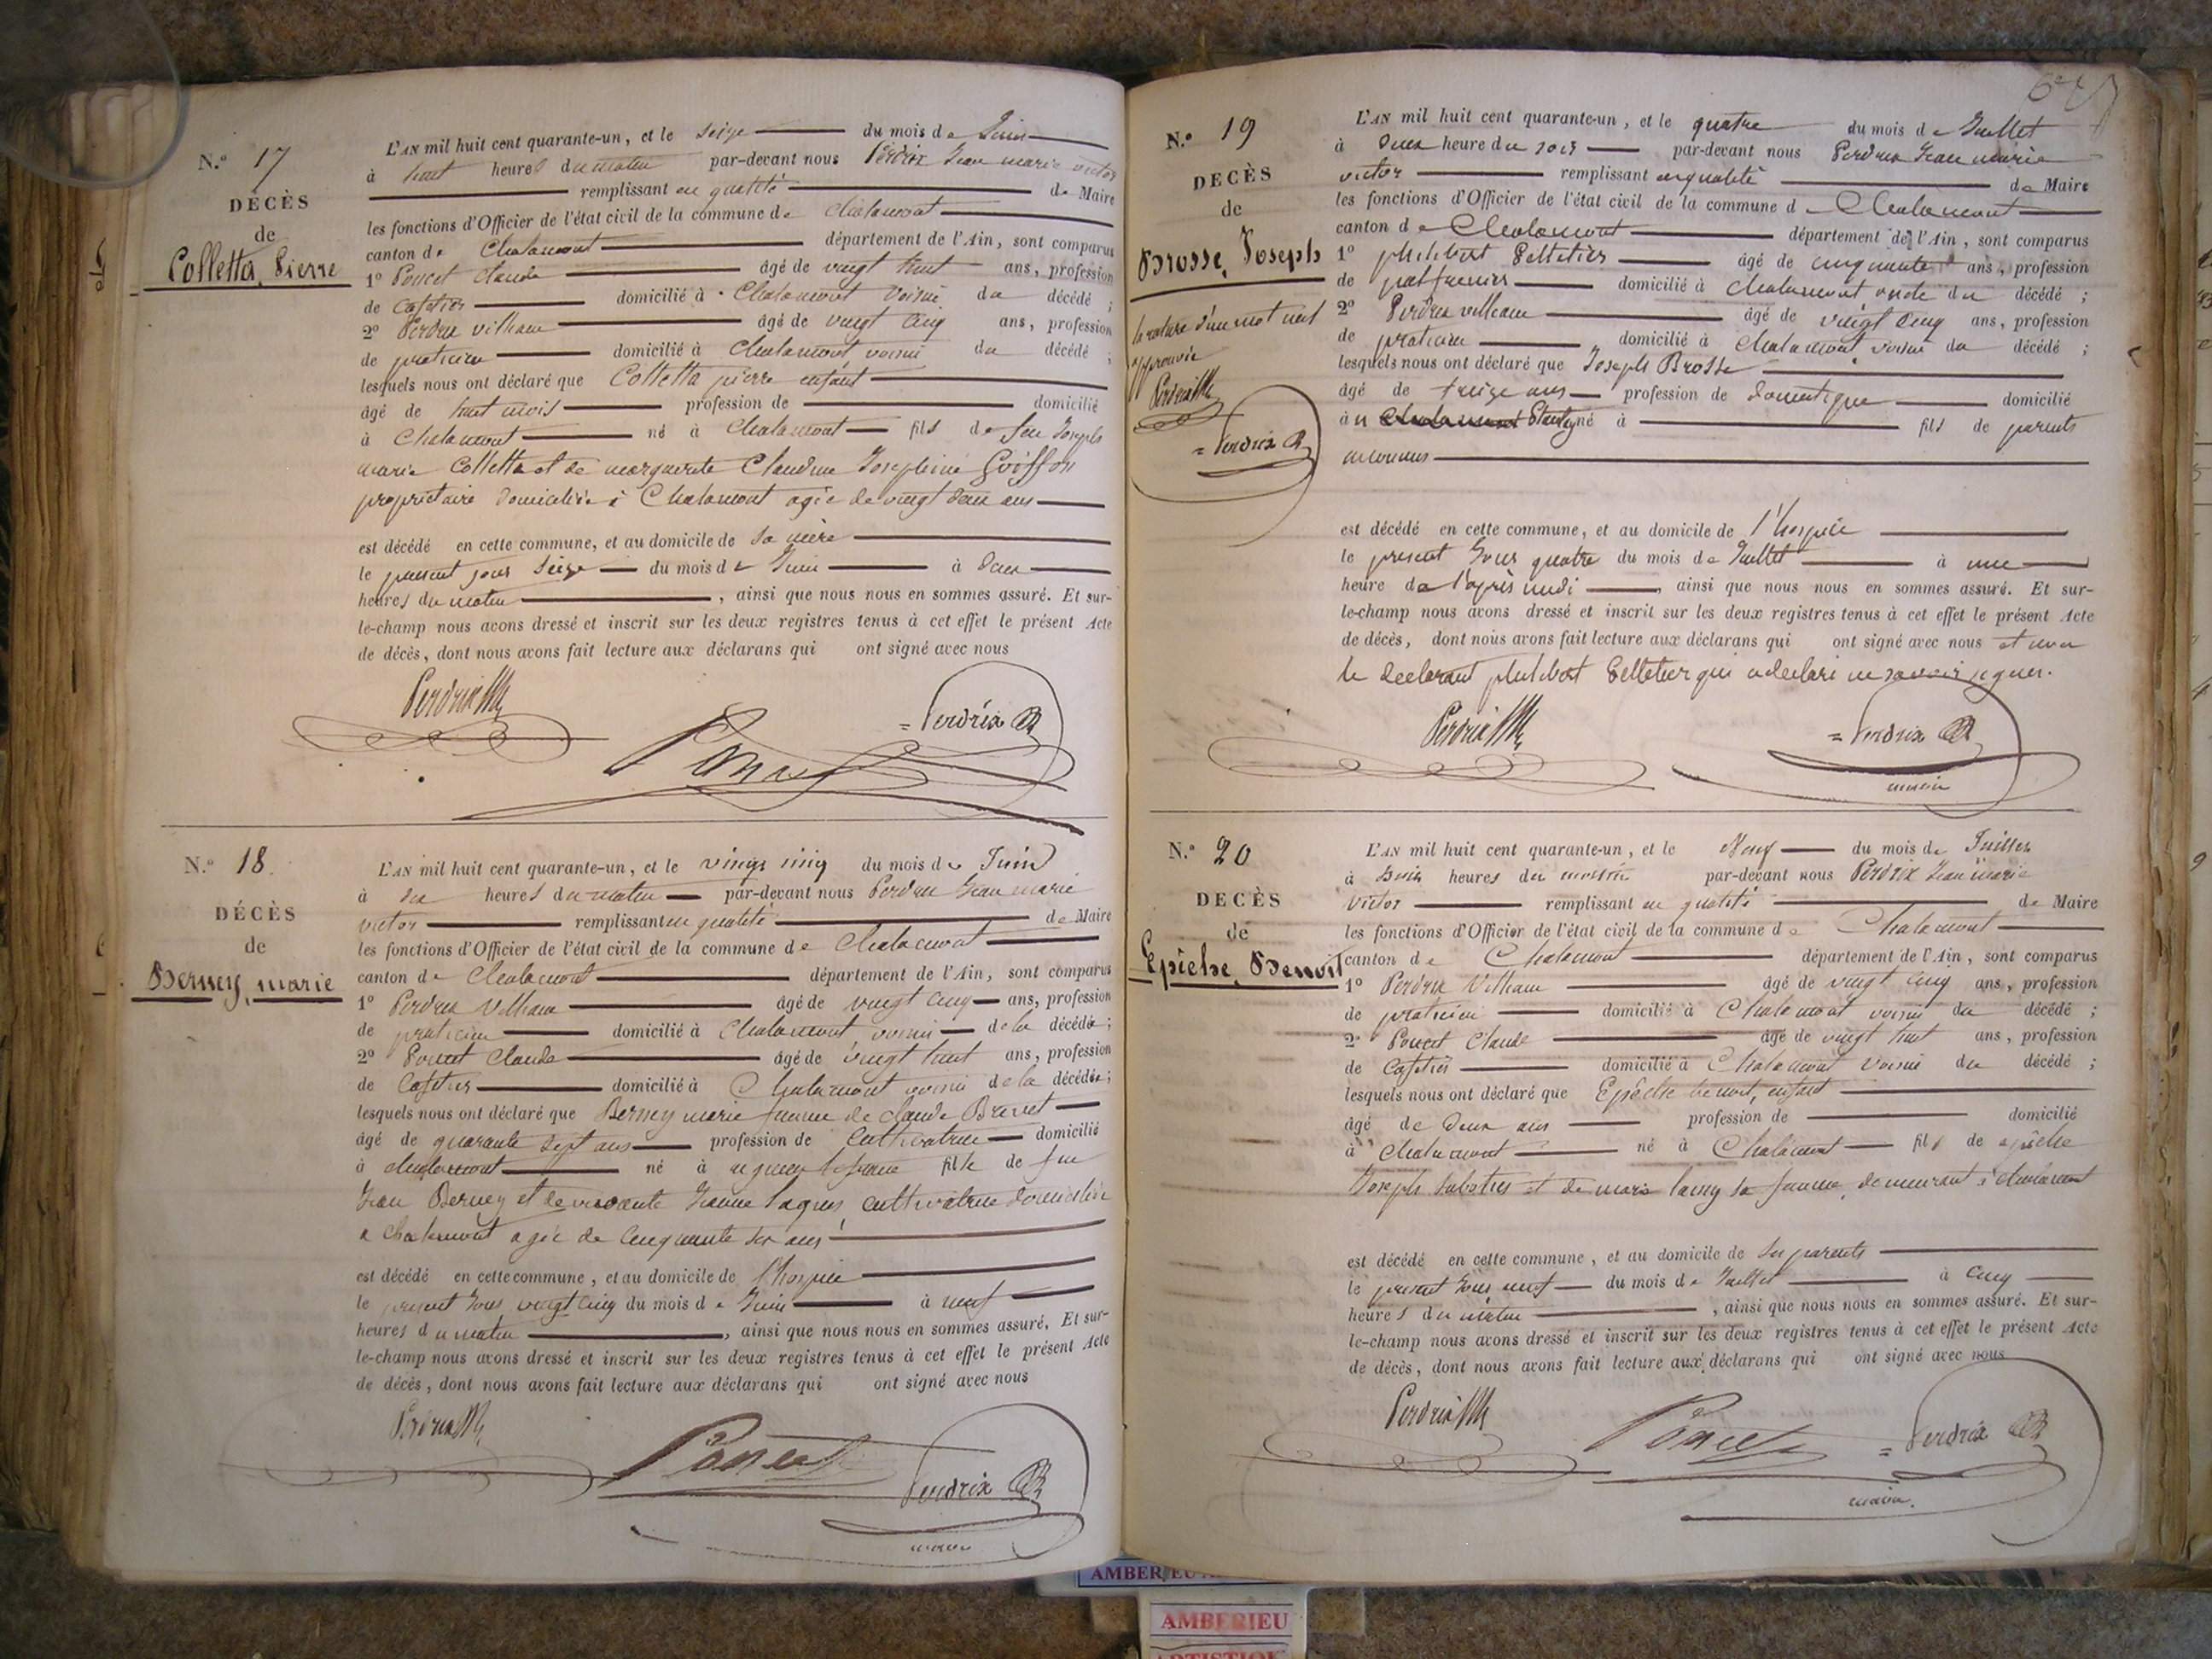 N.º 17
DÉCÈS
de
Colletta, Pierre
L'AN mil huit cent quarante-un, et le seize du mois de Juin
à huit heures du matin par-devant nous Perdrix Jean marie victor
remplissant en qualité de Maire
les fonctions d'Officier de l'état civil de la commune de Chalamont
canton de Chalamont département de l'Ain, sont comparus
1º Poncet Claude âgé de vingt huit ans, profession
de Cafetier domicilié à Chalamont voisin du décédé ;
2º Perdrix vilheaume âgé de vingt cinq ans, profession
de praticien domicilié à Chalamont, voisin du décédé ;
lesquels nous ont déclaré que Colletta pierre enfant
âgé de huit mois profession de domicilié
à Chalamont né à Chalamont fils de feu Joseph
marie Colletta et de marguerite Claudine Josephine Goiffon
propriétaire domiciliée à Chalamont agée de vingt deux ans
est décédé en cette commune, et au domicile de sa mère
le present jour seize du mois de Juin à deux
heures du matin , ainsi que nous nous en sommes assuré. Et sur-
le-champ nous avons dressé et inscrit sur les deux registres tenus à cet effet le présent Acte
de décès, dont nous avons fait lecture aux déclarans qui ont signé avec nous
Perdrix
= Perdrix
Poncet
N.º 18.
DÉCÈS
de
Berney, marie
L'AN mil huit cent quarante-un, et le vingt cinq du mois de Juin
à dix heures du matin par-devant nous Perdrix Jean marie
victor remplissant en qualité de Maire
les fonctions d'Officier de l'état civil de la commune de Chalamont
canton de Chalamont département de l'Ain, sont comparus
1º Perdrix Vilheaume âgé de vingt cinq ans, profession
de praticien domicilié à Chalamont voisin de la décédée ;
2º Poncet Claude âgé de vingt huit ans, profession
de Cafetier domicilié à Chalamont voisin de la décédée ;
lesquels nous ont déclaré que Berney marie femme de claude Brevet
âgé de quarante sept ans profession de Cultivatrice domicilié
à chalamont né à fille de feu
Jean Berney et de vivante Jeanne cultivatrice domiciliée
a Chalamont agée de Cinquante ans
est décédé en cette commune, et au domicile de l'hospice
le present jour vingt cinq du mois de Juin à neuf
heures du matin , ainsi que nous nous en sommes assuré. Et sur-
le-champ nous avons dressé et inscrit sur les deux registres tenus à cet effet le présent Acte
de décès, dont nous avons fait lecture aux déclarans qui ont signé avec nous
Perdrix
Poncet
Perdrix
maire
N.º 19
DECÈS
de
Brosse, Joseph
la rature d'un mot nul
approuvée
Perdrix
= Perdrix
L'AN mil huit cent quarante-un, et le quatre du mois de Juillet
à deux heure du soir par-devant nous Perdrix Jean marie
victor remplissant en qualité de Maire
les fonctions d'Officier de l'état civil de la commune de Chalamont
canton de Chalamont département de l'Ain, sont comparus
1º philibert Pelletier âgé de cinquante ans, profession
de domicilié à Chalamont, oncle du décédé ;
2º Perdrix vilheaume âgé de vingt cinq ans, profession
de praticien domicilié à Chalamont voisin du décédé ;
lesquels nous ont déclaré que Joseph Brosse
âgé de treize ans profession de domestique domicilié
à né à fils de parents
inconnus
est décédé en cette commune, et au domicile de l'hospice
le present Jour quatre du mois de Juillet à une
heure de l'après midi , ainsi que nous nous en sommes assuré. Et sur-
le-champ nous avons dressé et inscrit sur les deux registres tenus à cet effet le présent Acte
de décès, dont nous avons fait lecture aux déclarans qui ont signé avec nous et non
le declarant philibert Pelletier qui a declaré ne savoir signer.
Perdrix
= Perdrix
maire
N.º 20
DECÈS
de
Epiche, Benoit
L'AN mil huit cent quarante-un, et le Neuf du mois de Juillet
à heures du par-devant nous Perdrix Jean marie
Victor remplissant en qualité de Maire
les fonctions d'Officier de l'état civil de la commune de Chalamont
canton de Chalamont département de l'Ain, sont comparus
1º Perdrix Vilheaume âgé de vingt cinq ans, profession
de praticien domicilié à Chalamont voisin du décédé ;
2º Poncet Claude âgé de vingt huit ans, profession
de Cafetier domicilié à Chalamont voisin du décédé ;
lesquels nous ont déclaré que Epiche benoit, enfant
âgé de deux ans profession de domicilié
à Chalamont né à Chalamont fils de epiche
Joseph sabotier et de marie sa femme, demeurant à chalamont
est décédé en cette commune, et au domicile de ses parents
le present Jour neuf du mois de Juillet à cinq
heures du matin , ainsi que nous nous en sommes assuré. Et sur-
le-champ nous avons dressé et inscrit sur les deux registres tenus à cet effet le présent Acte
de décès, dont nous avons fait lecture aux déclarans qui ont signé avec nous
Perdrix
Poncet
= Perdrix
maire.
AMBERIEU
AMBERIEU